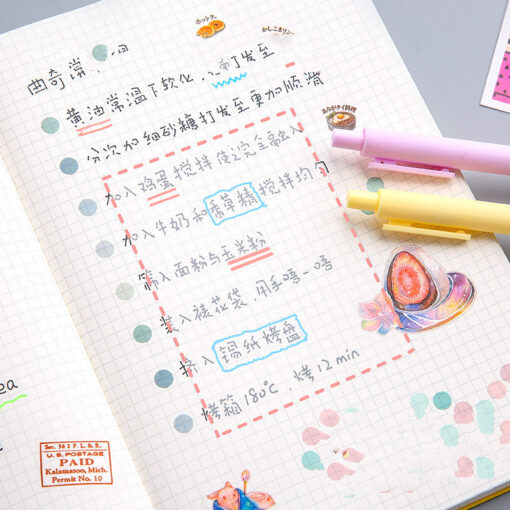 曲奇
黄油常温下软化，打发至
分次加细砂糖打发至更加顺滑
加入鸡蛋搅拌使之完全融入
加入牛奶和香草精搅拌均匀
筛入面粉与玉米粉
装入裱花袋，用手
挤入锡纸烤盘
烤箱180℃，烤12min
ea
Sec. 562 P. L. & R.
U.S. POSTAGE
PAID
Kalamazoo, Mich.
Permit No. 10
ホットク
かしこまリン